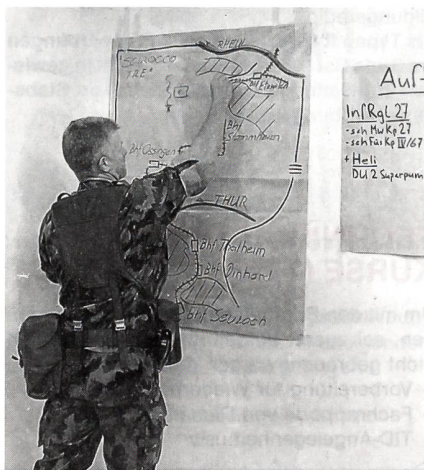 RHEIN
"SCIROCCO
TRE"
Bhf Etzwilen
Bhf
Stammheim
Bhf Ossingen
THUR
Bhf Thalheim
Bhf Dinhard
Bhf Seuzach
Auf
Inf Rgt 27
- sch Mw Kp 27
- sch Füs Kp IV/67
+ Heli
DU 2 Superpum